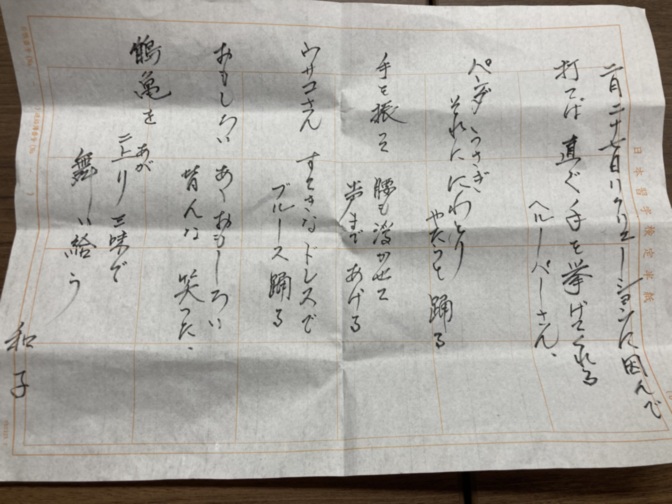 二月二十七日リクリエーションに因んで
打てば 直ぐ手を挙げてくれる
ヘルーパーさん、
パンダ うさぎ
それににわとり
踊る
手を振って 腰も浮かせて
あげる
ウサコさん すてきなドレスで
ブルース踊る
おもしろい あゝおもしろい
皆んな 笑った、
鶴亀を
あが
二上り三味で
舞い給う
和子